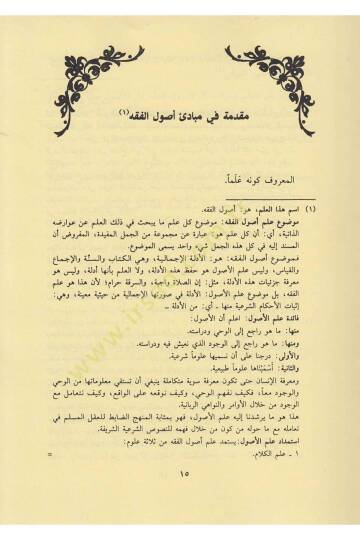 مقدمة في مبادئ أصول الفقه (١)
المعروف كونه عَلَماً.
(١) اسم هذا العلم، هو: أصول الفقه.
موضوع علم أصول الفقه: موضوع كل علم ما يبحث في ذلك العلم عن عوارضه
الذاتية، أي: أن كل علم هو: عبارة عن مجموعة من الجمل المفيدة، المفروض أن
المسند إليه في كل هذه الجمل شيء واحد يسمى الموضوع.
فموضوع أصول الفقه: هو: الأدلة الإجمالية، وهي الكتاب والسنَّة والإجماع
والقياس، وليس علم الأصول هو حفظ هذه الأدلة، ولا العلم بأنها أدلة، وليس هو
معرفة جزئيات هذه الأدلة، مثل: إن الصلاة واجبة، والسرقة حرام؛ لأن هذا هو علم
الفقه، بل موضوع علم الأصول: الأدلة في صورتها الإجمالية من حيثية معينة، وهي:
إثبات الأحكام الشرعية منها ـ أي: من الأدلة ـ
فائدة علم الأصول: اعلم أن الأصول:
منها: ما هو راجع إلى الوحي ودراسته.
ومنها: ما هو راجع إلى الوجود الذي نعيش فيه ودراسته.
والأولى: درجنا على أن نسميها علوماً شرعية.
والثانية: أسْمَيْناها علوماً طبيعية.
ومعرفة الإنسان حتى تكون معرفة سوية متكاملة ينبغي أن تستقي معلوماتها من الوحي
والوجود معاً، فكيف نفهم الوحي، وكيف نوقعه على الواقع، وكيف نتعامل مع
الوجود من خلال الأوامر والنواهي الربانية.
هذا هو ما يرشدنا إليه علم الأصول، فهو بمثابة المنهج الضابط للعقل المسلم في
تعامله مع ما حوله من كون من خلال فهمه للنصوص الشرعية الشريفة.
استمداد علم الأصول: يستمد علم أصول الفقه من ثلاثة علوم:
١ ـ علم الكلام. =
١٥